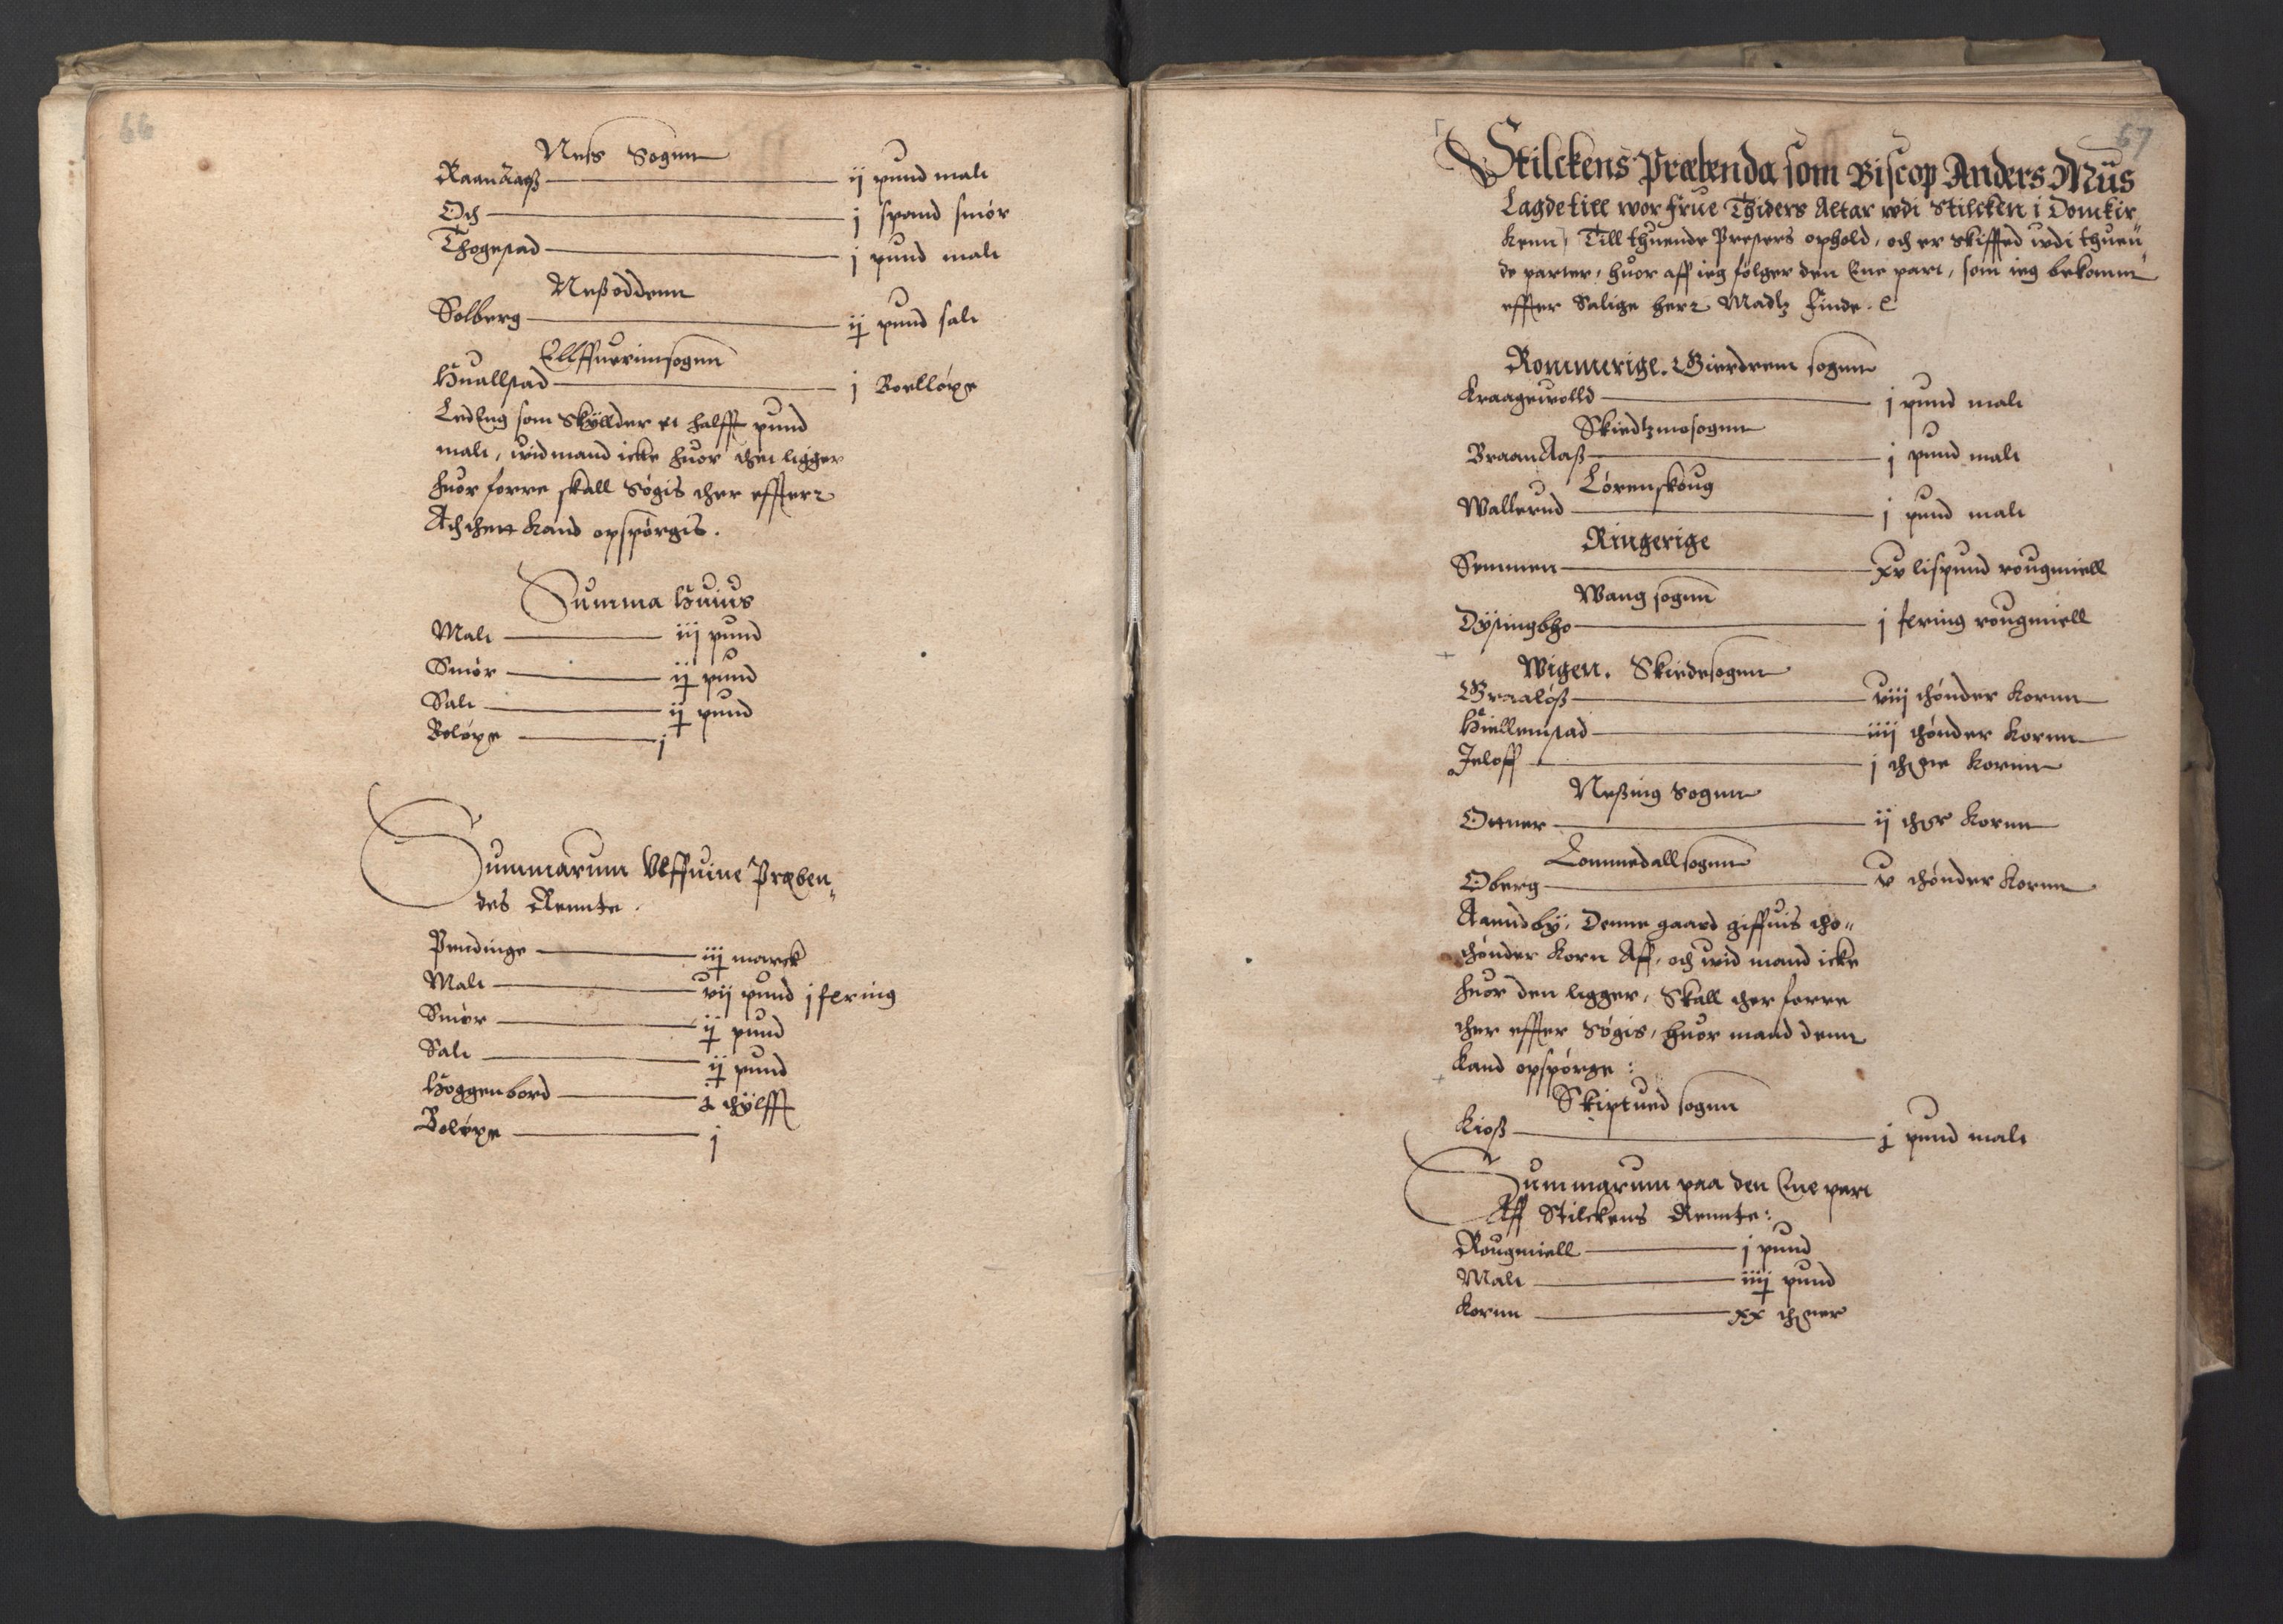 66
Ness Sognn
RaanAaaß — ij pund malt
Och — j spand smør
Thogestad — j pund malt
Neßoddenn
Solberg — ij pund salt
Ellffuerimsognn
Huallstad — j Boelløxe
LedEng som Skÿllder et halfft pund
malt, wid mand icke huor thet ligger
huor forre skall Søgis ther effterr
At thett Kand opspørgis.
Summa Huius
Malt — iij pund
Smør — ij pund
Salt — ij pund
Boløxe — j
Summarum Vlffuine Præben„
des Rennte.
Pendinge — iij marck
Malt — vij pund j fering
Smør — ij pund
Salt — ij pund
Hoggenbord — thÿlfft
Boløxe — j
67
Stilckens Præbenda som Biscop Anders Mus
Lagde till wor frue Thiders Altar wdi Stilcken i Domkir„
kenn, Till thuende Presters ophold, och er skiffted wdi thuen„
de parter, huor aff ieg følger den Ene part, som ieg bekomm
effter Salige herr Madtz Finde.
Rommerige. Gierdrem sognn
Kraagewolld — j pund malt
Skiedtzmosognn
BraanAaß — j pund malt
Lørenskoug
Wallerud — j pund malt
Ringerige
Semmen — xv lispund rougmiell
Wang sognn
Dÿstingbho — j fering rougmiell
Wigen. Skiedesognn
Graaløß — viij thønder Kornn
Hiellemstad — iiij thønder Kornn
Jeloff — j thøne Kornn
Neßing Sognn
Ottner — ij thør Kornn
Tommedallsognn
Oberg — v thønder Kornn
Aamdbÿ, Denne gaard giffuis tho„
thønder Korn Aff, och wid mand icke
huor den ligger, Skall ther forre
ther effter Søgis, huor mand denn
kand opspørge:
Skiptued sognn
Kioß — j pund malt
Summarum paa den Ene part
Aff Stilckens Rennte:
Rougmiell — j pund
Malt — iiij pund
Kornn — xx thøner